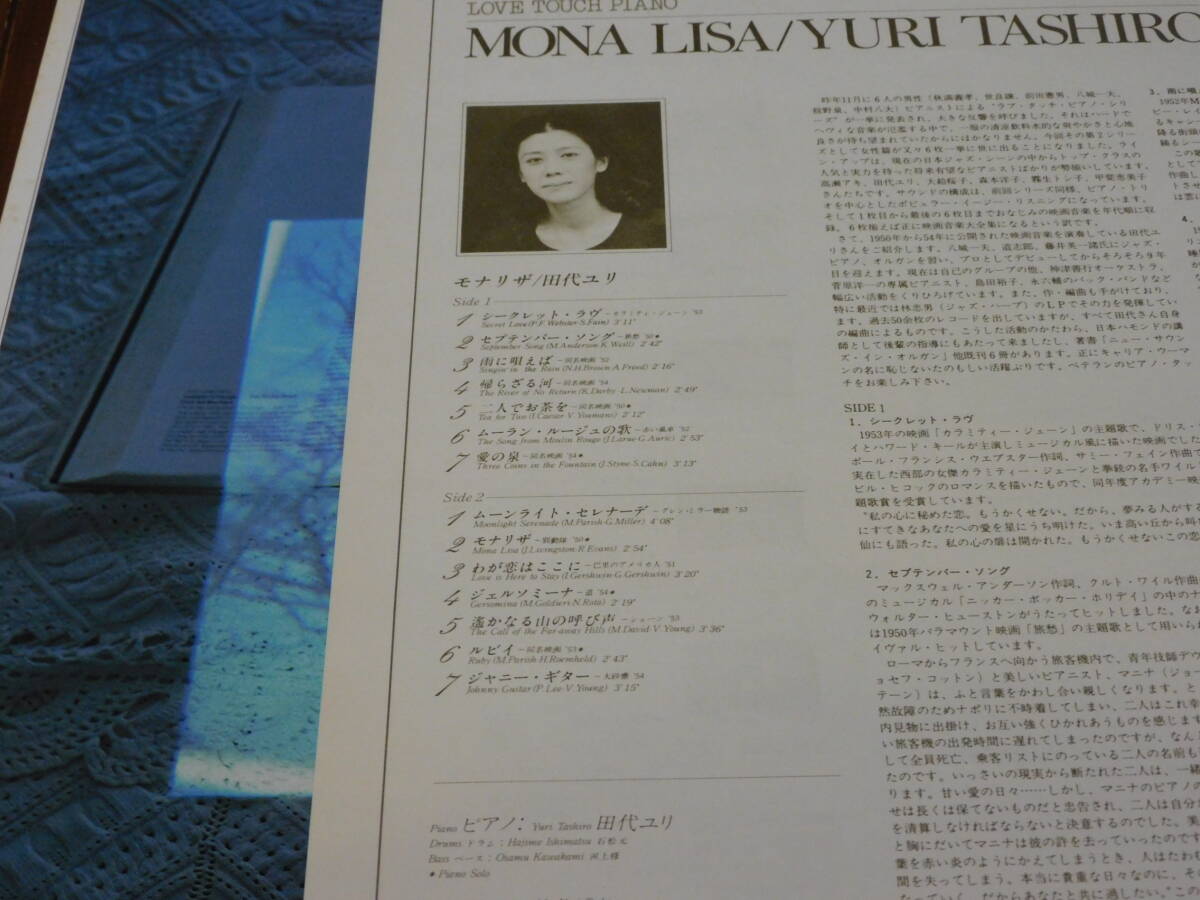 LOVE TOUCH PIANO
MONA LISA/YURI TASHIRO
モナリザ/田代ユリ
Side 1
1 シークレット・ラヴ −カラミティ・ジェーン '53
Secret Love(P.F. Webster-S.Fain) 3'11"
2 セプテンバー・ソング −旅愁 '50●
September Song (M.Anderson-K.Weill) 2'42"
3 雨に唄えば −同名映画 '52
Singin' in the Rain (N.H.Brown-A.Freed) 2'16"
4 帰らざる河 −同名映画 '54
The River of No Return (K.Darby-L.Newman) 2'49"
5 二人でお茶を −同名映画 '50●
Tea for Two (I.Caesar-V.Youmans) 2'12"
6 ムーラン・ルージュの歌 −赤い風車 '52
The Song from Moulin Rouge (J.Larue-G.Auric) 2'53"
7 愛の泉 −同名映画 '54●
Three Coins in the Fountain (J.Styne-S.Cahn) 3'13"
Side 2
1 ムーンライト・セレナーデ −グレン・ミラー物語 '53
Moonlight Serenade (M.Parish-G.Miller) 4'08"
2 モナリザ −別動隊 '50●
Mona Lisa (J.Livingston-R.Evans) 2'54"
3 わが恋はここに −巴里のアメリカ人 '51
Love is Here to Stay (I.Gershwin-G.Gershwin) 3'20"
4 ジェルソミーナ −道 '54●
Gersomina (M.Goldieri-N.Rota) 2'19"
5 遥かなる山の呼び声 −シェーン '53
The Call of the Far-away Hills (M.David-V.Young) 3'36"
6 ルビイ −同名映画 '53●
Ruby (M.Parish-H.Roemheld) 2'43"
7 ジャニー・ギター −大砂塵 '54
Johnny Guitar (P.Lee-V.Young) 3'15"
Piano ピアノ: Yuri Tashiro 田代ユリ
Drums ドラム: Hajime Ishimatsu 石松元
Bass ベース: Osamu Kawakami 河上修
● Piano Solo
昨年11月に6人の男性(秋満義孝、世良譲、前田憲男、八城一夫、
枝野量、中村八大)ピアニストによる“ラブ・タッチ・ピアノ・シリ
ーズ”が一挙に発表され、大きな反響を呼びました。それはハードで
ヘヴィな音楽が氾濫する中で、一服の清涼飲料水的な爽やかさと心地
良さが待ち望まれていたからにほかなりません。今回その第2シリー
ズとして女性篇が又々6枚一挙に世に出ることになりました。ライ
ン・アップは、現在の日本ジャズ・シーンの中からトップ・クラスの
人気と実力を持った将来有望なピアニストばかりが勢揃いしています。
高瀬アキ、田代ユリ、大給桜子、森本洋子、霧生トシ子、甲斐恵美子
さんたちです。サウンドの構成は、前回シリーズ同様、ピアノ・トリ
オを中心としたポピュラー・イージー・リスニングになっています。
そして1枚目から最後の6枚目までおなじみの映画音楽を年代順に収
録、6枚揃えば正に映画音楽大全集になるという訳です。
さて、1950年から54年に公開された映画音楽を演奏している田代ユ
リさんをご紹介します。八城一夫、道志郎、藤井英一諸氏にジャズ・
ピアノ、オルガンを習い、プロとしてデビューしてからそろそろ9年
目を迎えます。現在は自己のグループの他、神津善行オーケストラ、
菅原洋一の専属ピアニスト、島田裕子、永六輔のバック・バンドなど
幅広い活動をくりひろげています。また、作・編曲も手がけており、
特に最近では林忠男(ジャズ・ハープ)のLPでその力を発揮してい
ます。過去50余枚のレコードを出していますが、すべて田代さん自身
の編曲によるものです。こうした活動のかたわら、日本ハモンドの講
師として後輩の指導にもあたって来ましたし、著書「ニュー・サウン
ズ・イン・オルガン」他既刊6冊があります。正にキャリア・ウーマ
ンの名に恥じないたのもしい活躍ぶりです。ベテランのピアノ・タッ
チをお楽しみ下さい。
SIDE 1
1. シークレット・ラヴ
1953年の映画「カラミティー・ジェーン」の主題歌で、ドリス・
イとハワード・キールが主演しミュージカル風に描いた映画でした
ポール・フランシス・ウエブスター作詞、サミー・フェイン作曲で
実在した西部の女傑カラミティー・ジェーンと拳銃の名手ワイル
ビル・ヒコックのロマンスを描いたもので、同年度アカデミー映
題歌賞を受賞しています。
“私の心に秘めた恋。もうかくせない。だから、夢みる人がする
にすてきなあなたへの愛を星にうち明けた。いま高い丘から時
仙にも語った。私の心の扉は開かれた。もうかくせないこの恋
2. セプテンバー・ソング
マックスウェル・アンダーソン作詞、クルト・ワイル作曲
のミュージカル「ニッカー・ボッカー・ホリデイ」の中のナ
ウォルター・ヒューストンがうたってヒットしました。な
は1950年パラマウント映画「旅愁」の主題歌として用いら
イヴァル・ヒットしています。
ローマからフランスへ向かう旅客機内で、青年技師デウ
ョセフ・コットン)と美しいピアニスト、マニナ(ジョー
テーン)は、ふと言葉をかわし合い親しくなります。と
然故障のためナポリに不時着してしまい、二人はこれ幸
内見物に出掛け、お互い強くひかれあうものを感じます
い旅客機の出発時間に遅れてしまったのですが、なん
して全員死亡、乗客リストにのっている二人の名前も
たのです。いっさいの現実から断たれた二人は、一緒
ります。甘い愛の日々……しかし、マニナのピアノの
せは長くは保てないものだと忠告され、二人は自分
を清算しなければならないと決意するのでした。美
と胸にだいてマニナは彼の許を去っていったのです
葉を赤い炎のようにかえてしまうとき、人はたわむ
間を失ってしまう。本当に貴重な日々なのに、そ
なっていく、だからあなたと共に過したい。”この
3. 雨に唄
1952年M
4.